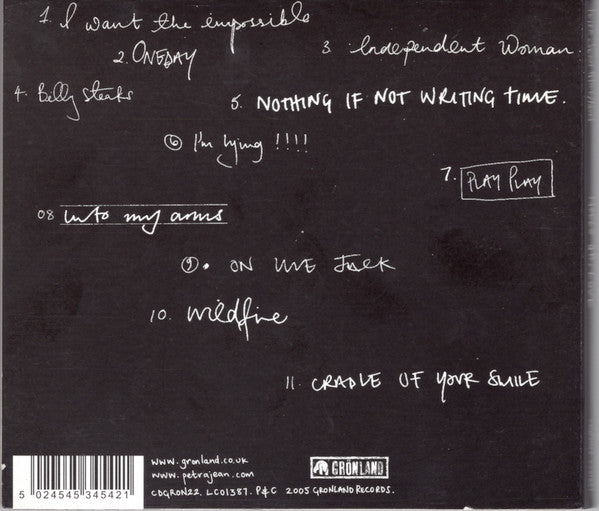 1. I want the impossible
2. ONEDAY
3 Independent Woman.
4. Billy Steaks
5. NOTHING IF NOT WRITING TIME.
6 I'm lying !!!!
7. PLAY PLAY
08 into my arms
9. ON LIVE Jack
10. wildfire
11. CRADLE OF YOUR SMILE
www.gronland.co.uk
www.petrajean.com
GRÖNLAND
CDGRON22. LC01387. P&C 2005 GRONLAND RECORDS.
5 024545 345421